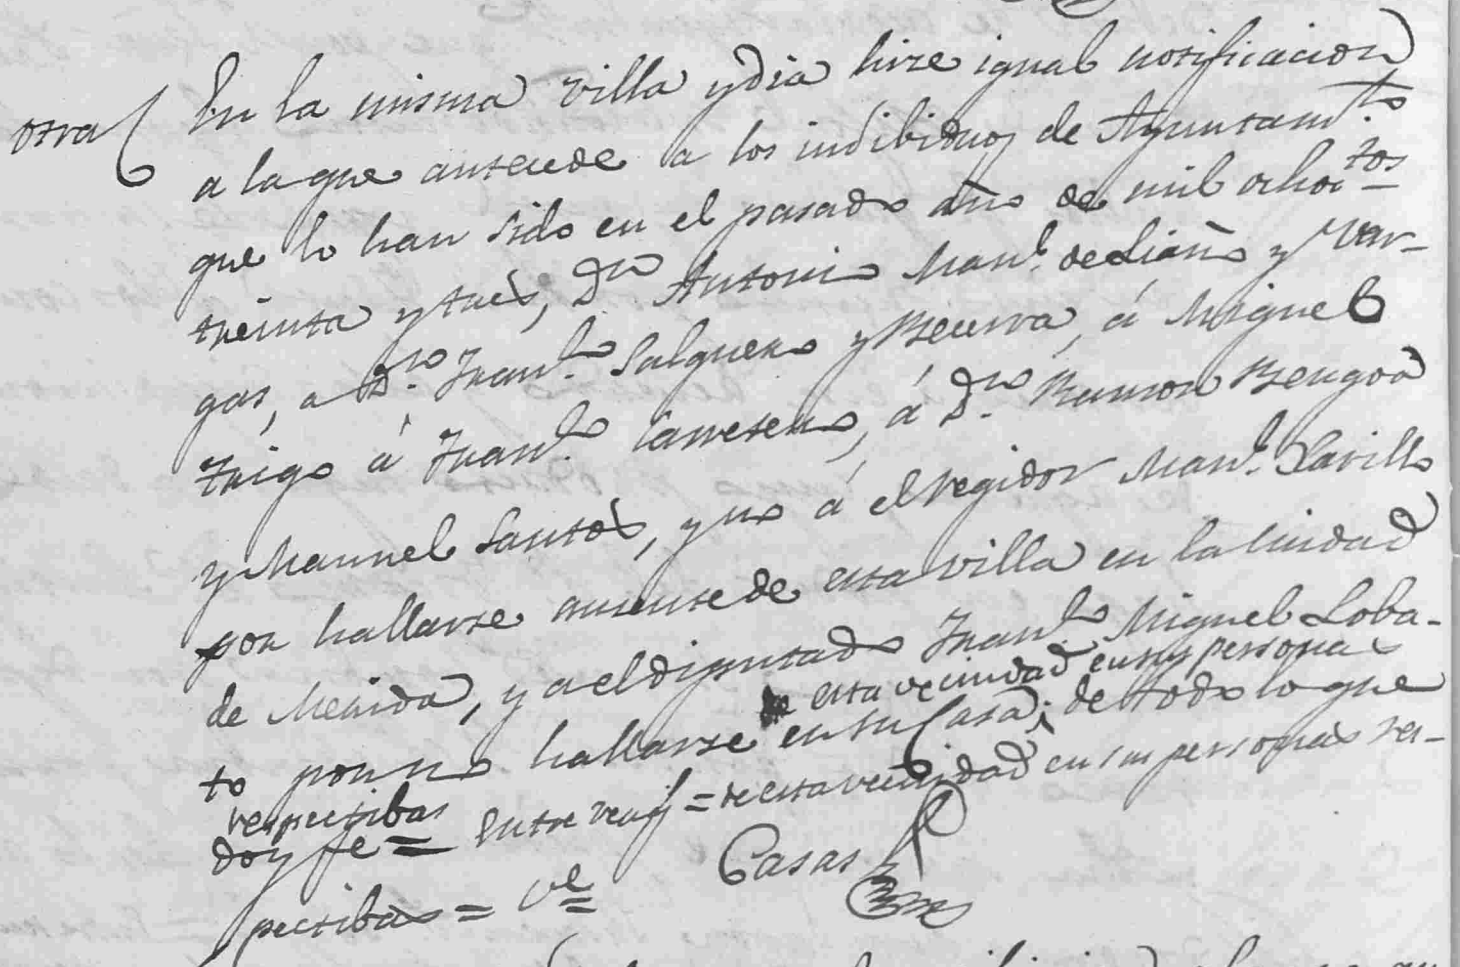 otra
En la misma villa y dia hize igual notificacion
a la que antecede a los indibiduos de Ayuntam.to
que lo han sido en el pasado año de mil ochoc.tos
treinta y tres, Dn Antonio Man.l de Liaño y Var-
gas, a Dn. Fran.co Salguero y Becerra, á Miguel
Trigo á Fran.co Carretero, á Dn. Ramon Bengoa
y Manuel Santos, y no á el regidor Man.l Clavillo
por hallarse ausente de esta villa en la Ciudad
de Merida, y a el diputado Fran.co Miguel Loba-
de esta vecindad en sus personas
to por no hallarse en su Casa; de todo lo que
respectibas
doy fe = Entre reng.s = de esta vecindad en sus personas res-
pectibas = Ve
Casas